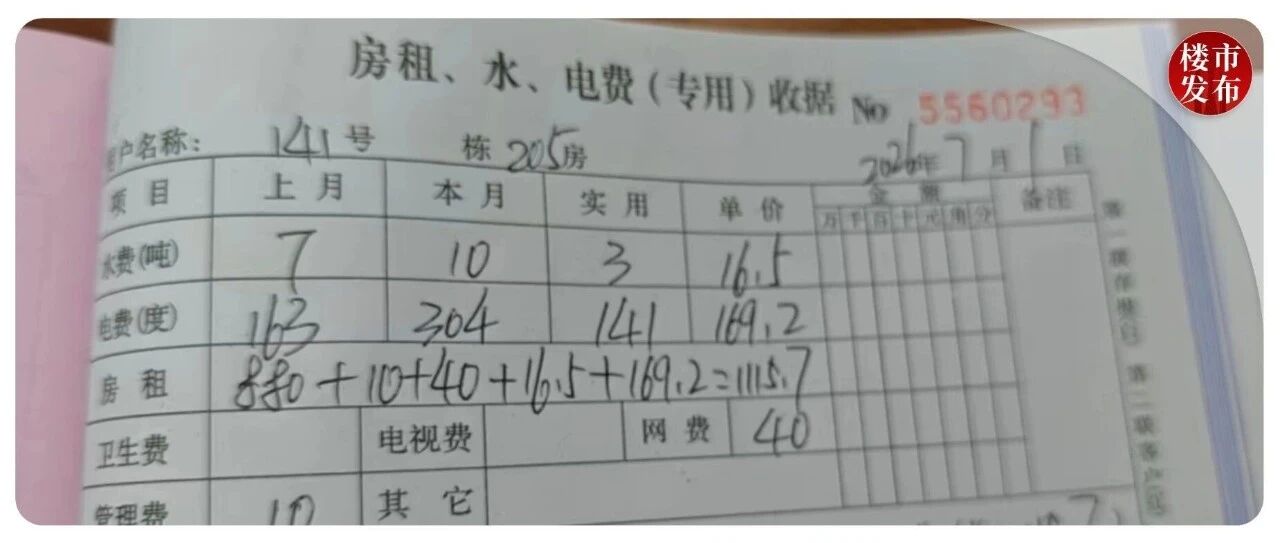 楼市
发布
房租、水、电费(专用)收据 No 5560293
户名称: 141号 栋 205房 2026年7月1日
项目 上月 本月 实用 单价 金额 备注
万 千 百 十 元 角 分
水费(吨) 7 10 3 16.5
电费(度) 163 304 141 169.2
房租 880+10+40+16.5+169.2=1115.7
卫生费 电视费 网费 40
管理费 10 其它